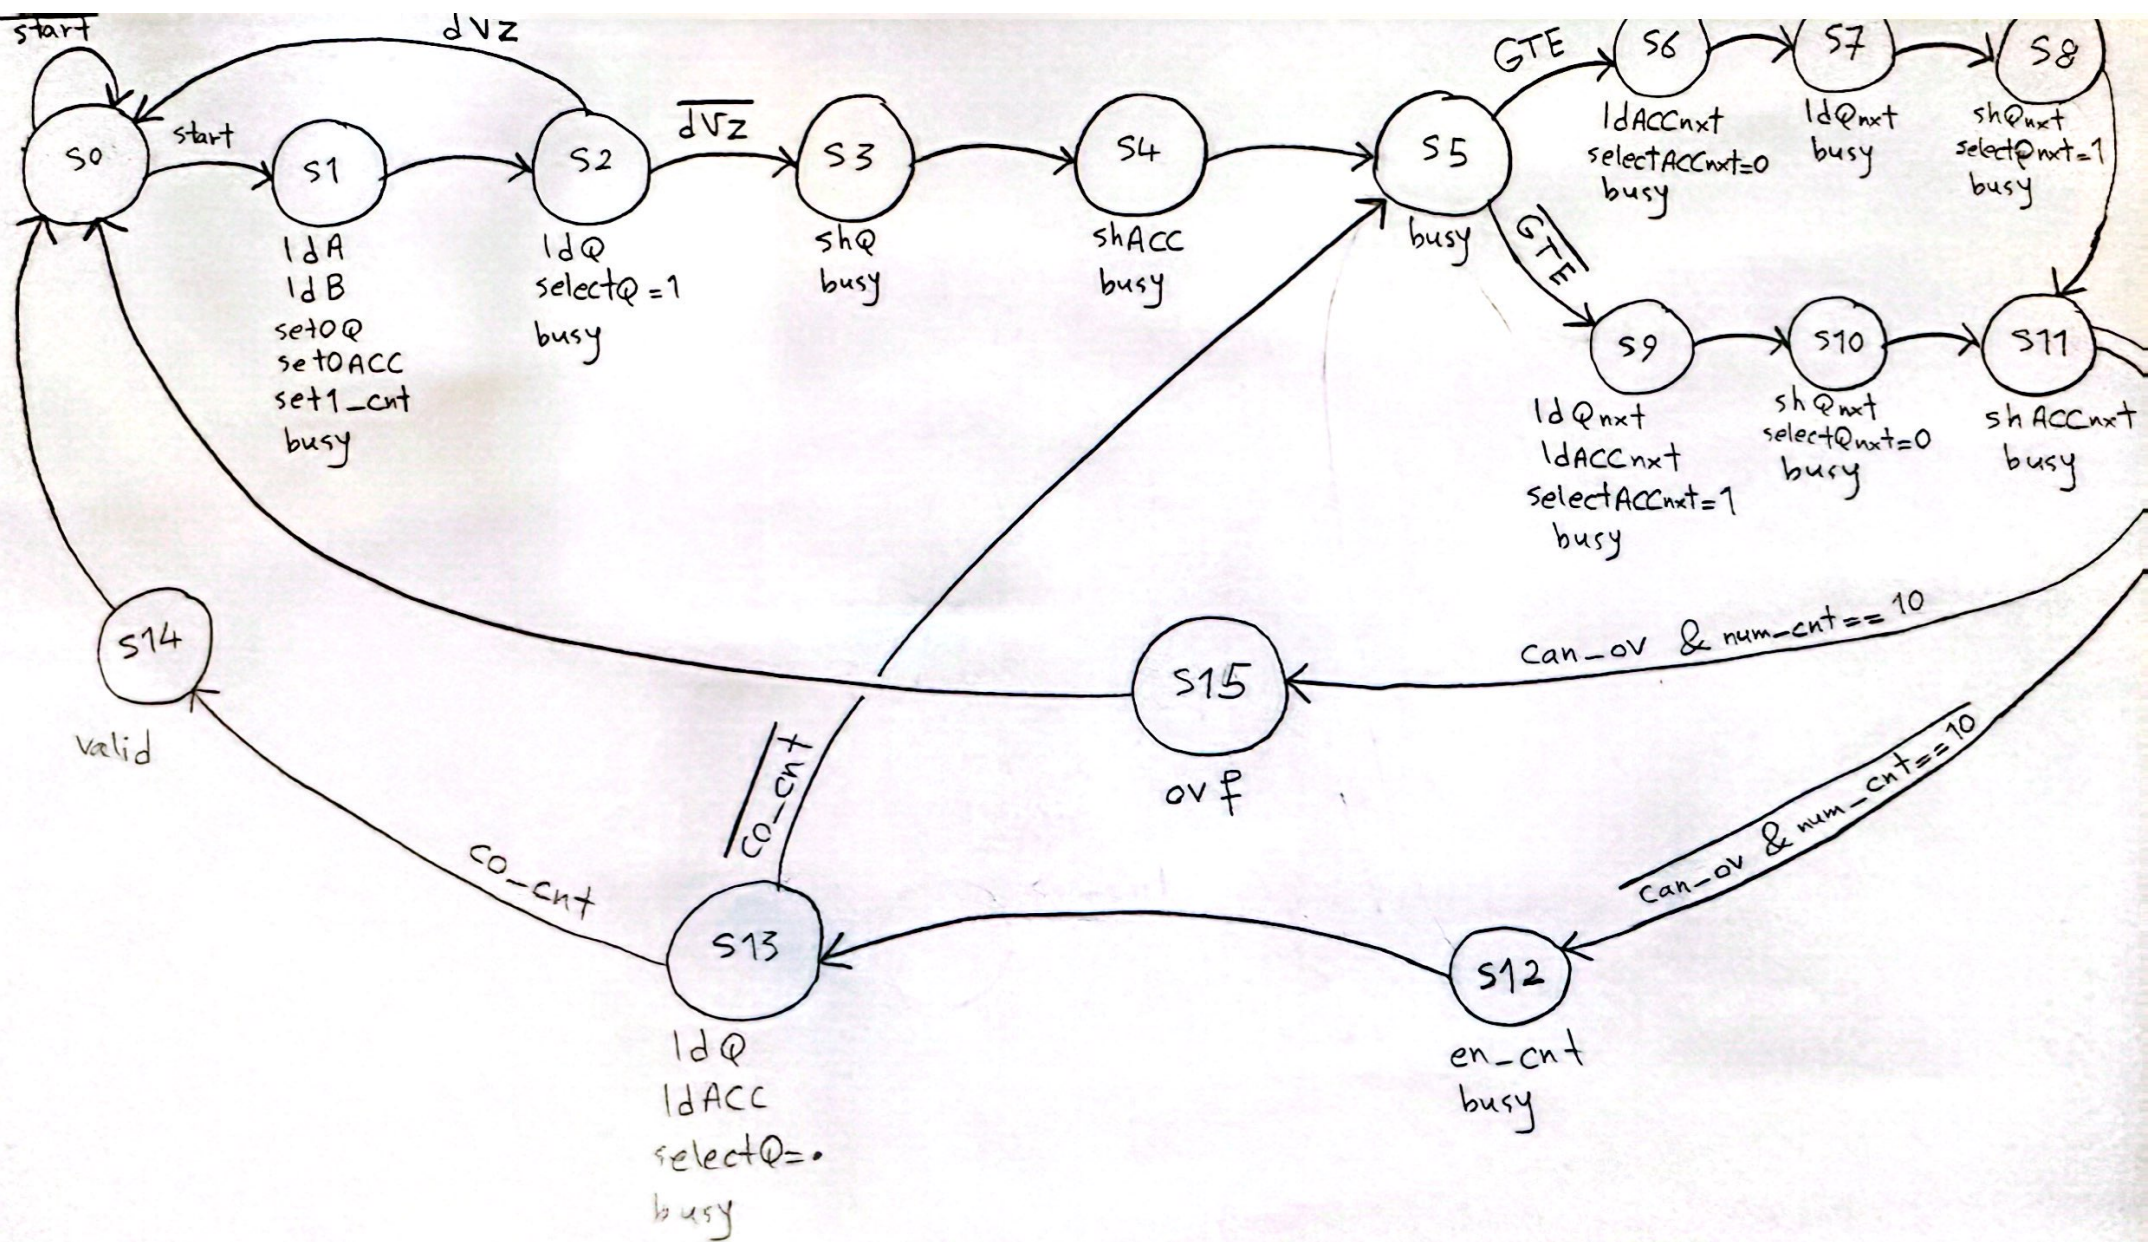 start
dVz
S0
start
S1
ldA
ldB
set0Q
set0ACC
set1_cnt
busy
S2
ldQ
selectQ=1
busy
dVz
S3
shQ
busy
S4
shACC
busy
S5
busy
GTE
S6
ldACCnxt
selectACCnxt=0
busy
S7
ldQnxt
busy
S8
shQnxt
selectQnxt=1
busy
GTE
S9
ldQnxt
ldACCnxt
selectACCnxt=1
busy
S10
shQnxt
selectQnxt=0
busy
S11
shACCnxt
busy
can_ov & num_cnt==10
S15
ovf
can_ov & num_cnt==10
S12
en_cnt
busy
S13
ldQ
ldACC
selectQ=•
busy
co_cnt
co_cnt
S14
valid